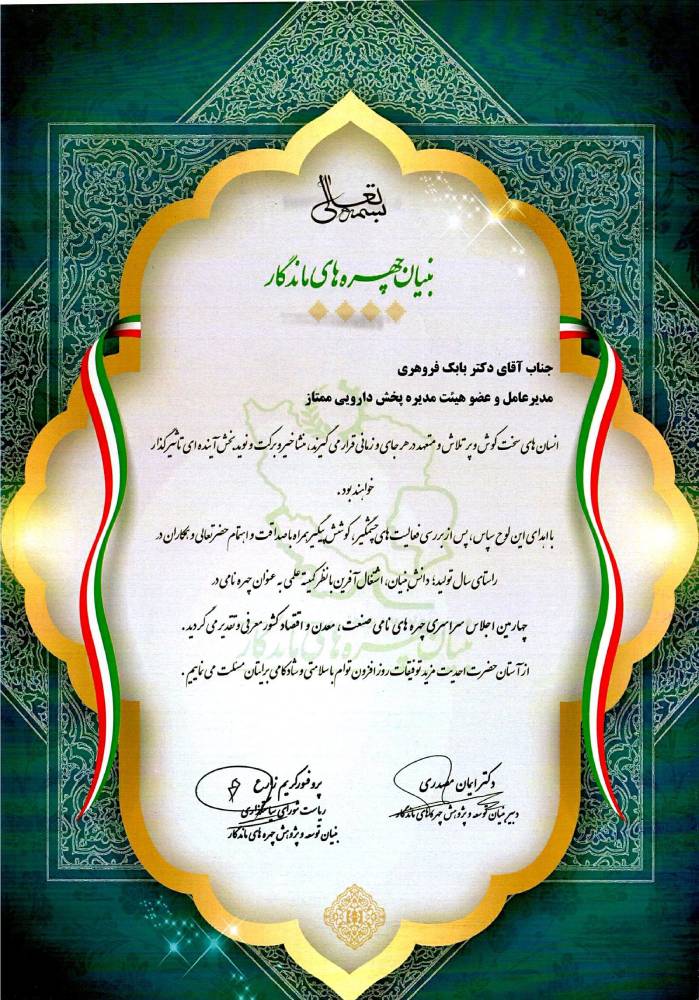 بسمه تعالی
بنیان چهره های ماندگار
جناب آقای دکتر بابک فروهری
مدیرعامل و عضو هیئت مدیره پخش دارویی ممتاز
انسان های سخت کوش و پر تلاش و متعهد در هر جای و زمانی قرار می گیرند، منشا خیر و برکت و نوید بخش آینده ای تاثیرگذار
خواهند بود.
با اهدای این لوح سپاس، پس از بررسی فعالیت های چشمگیر، کوشش پیگیر همراه با صداقت و اهتمام حضرتعالی و همکاران در
راستای سال تولید؛ دانش بنیان، اشتغال آفرین با نظر کمیته علمی به عنوان چهره نامی در
چهارمین اجلاس سراسری چهره های نامی صنعت، معدن و اقتصاد کشور معرفی و تقدیر می گردید.
از آستان حضرت احدیت مزید توفیقات روز افزون توام با سلامتی و شادکامی برایتان مسئلت می نماییم.
دکتر ایمان
دبیر بنیان توسعه و پژوهش چهره های ماندگار
پروفسور کریم
ریاست شورای سیاستگزاری
بنیان توسعه و پژوهش چهره های ماندگار
بنیان چهره های ماندگار